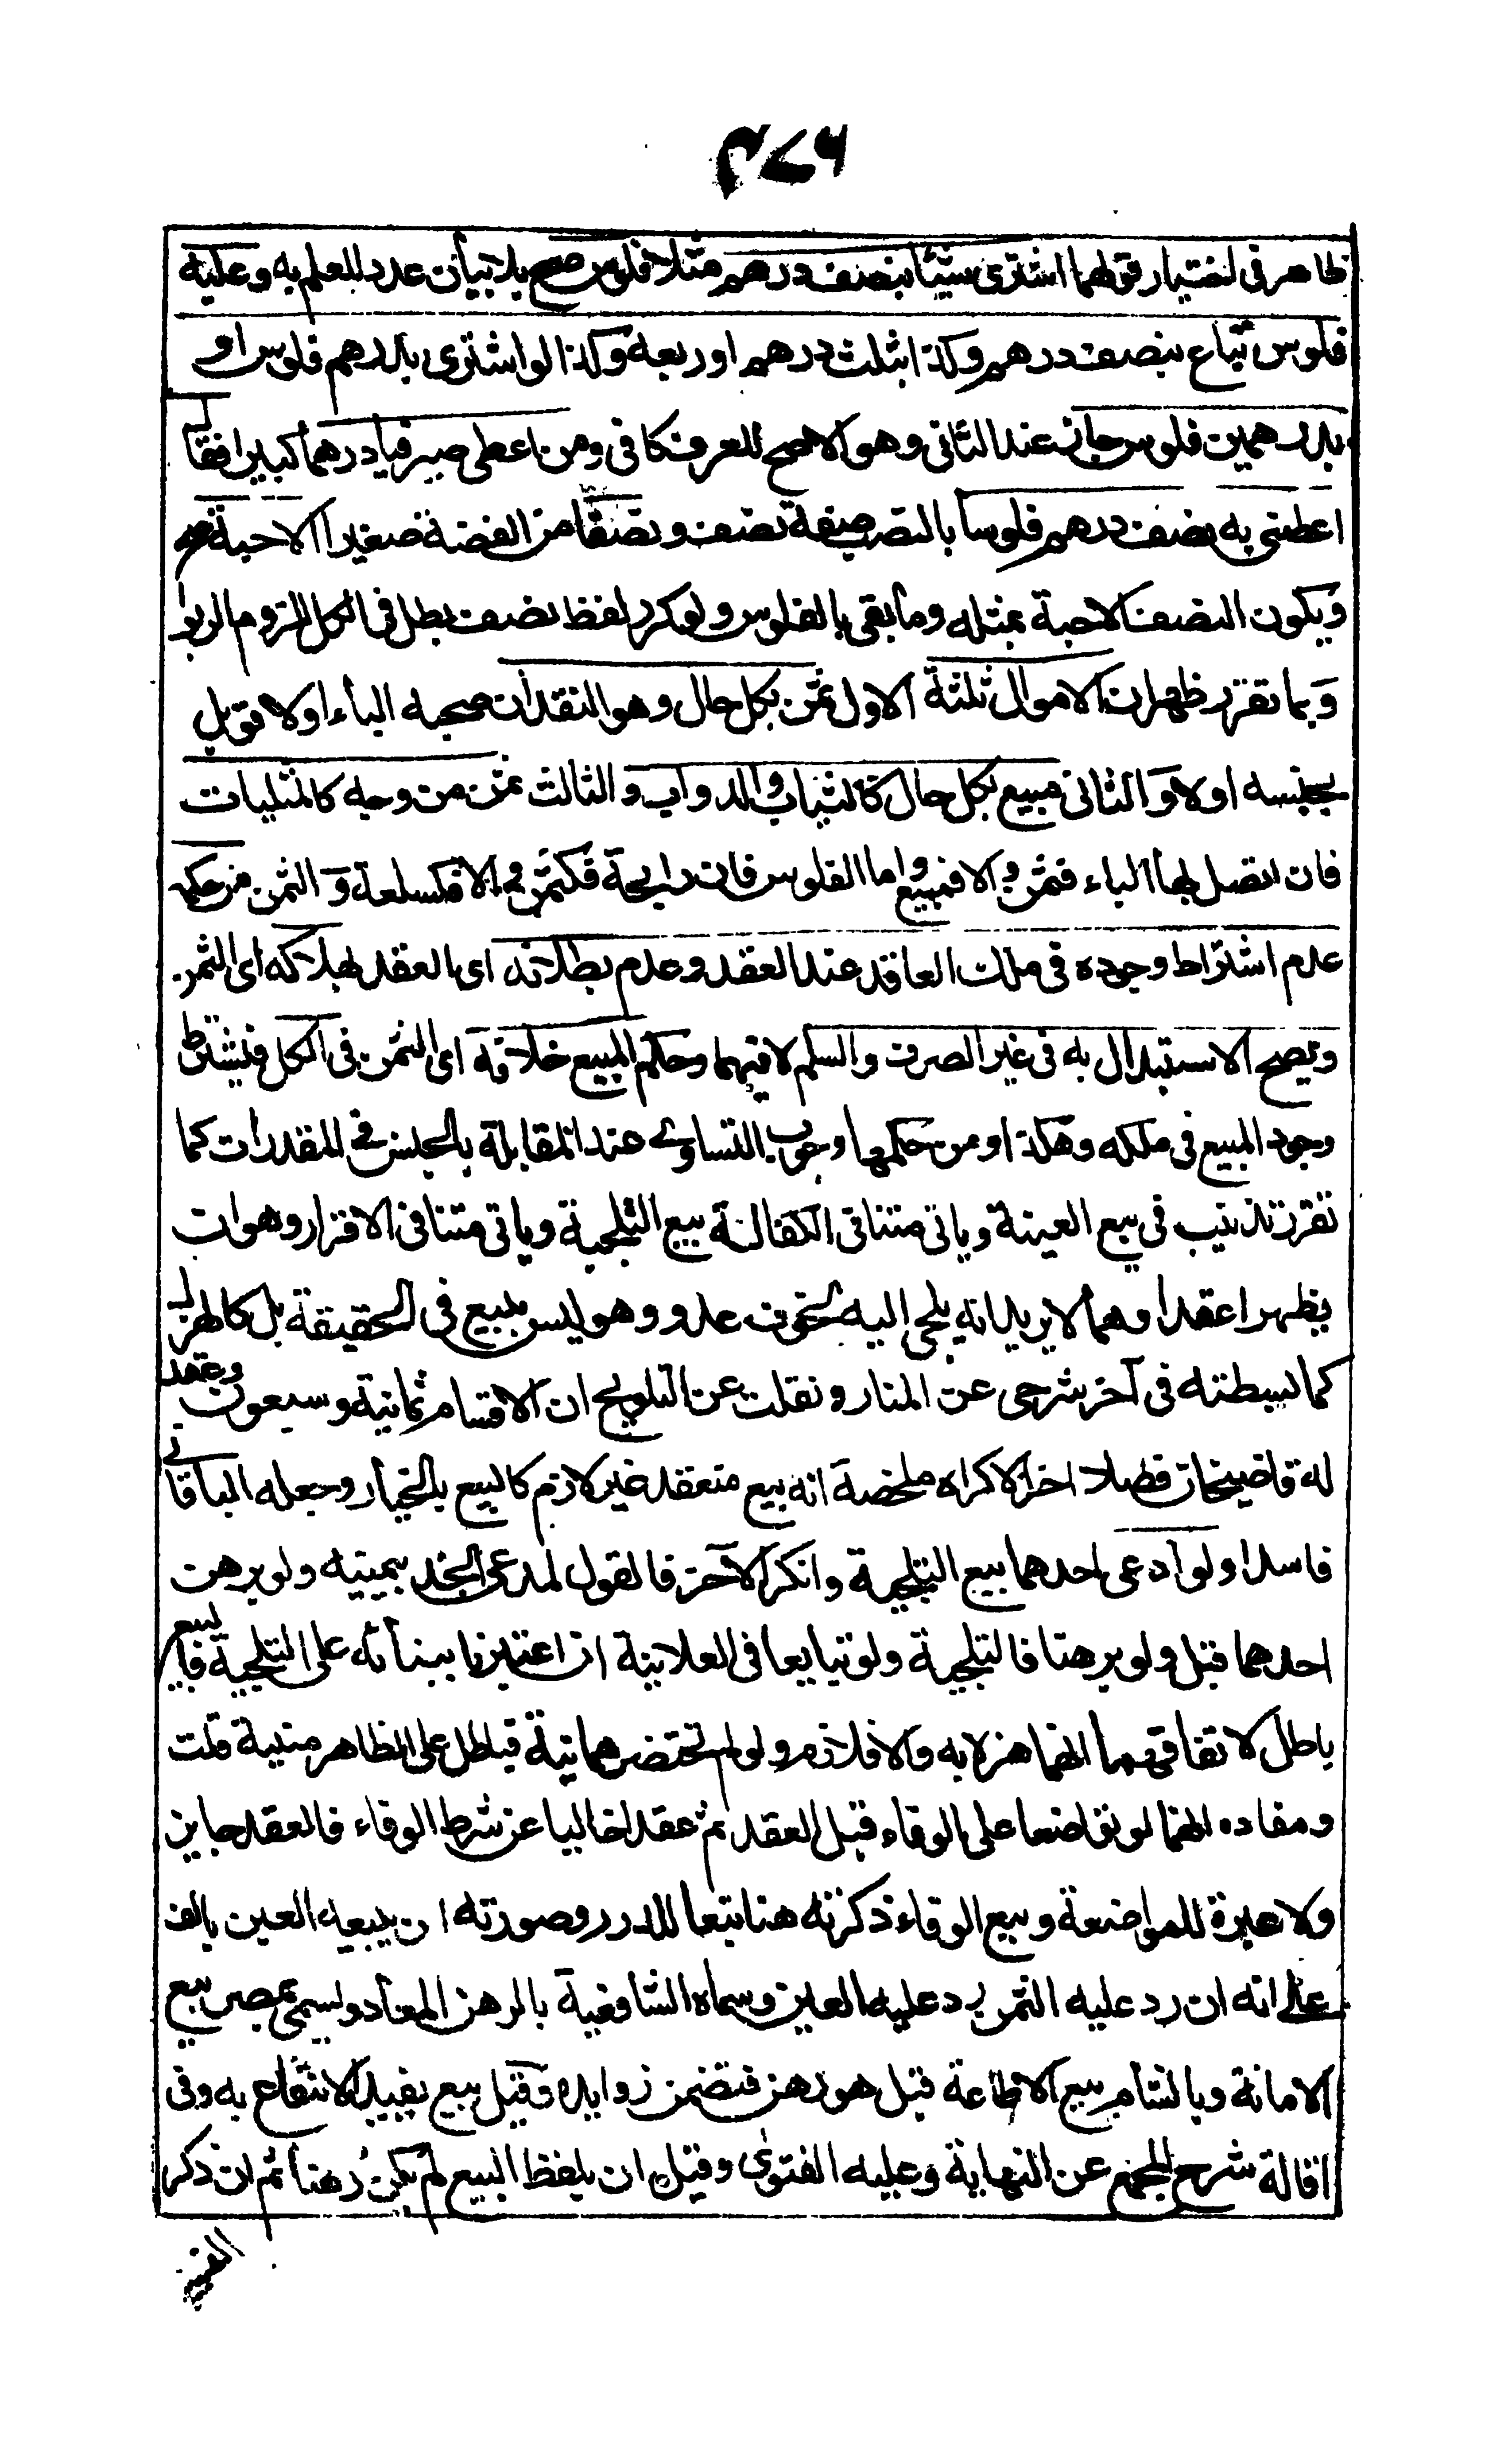 ٣٧٦
ظاهر في اختيار قولهما اشترى شيئا بنصف درهم مثلا فلوس صح بلا بيان عدد للعلم به وعليه
فلوس تباع بنصف درهم وكذا بثلث درهم او ربعه وكذا لو اشترى بدرهم فلوس او
بدرهمين فلوس جاز عند الثاني وهو الاصح للعرف كافي ومن اعطى صيرفيا درهما كبيرا فقال
اعطني به نصف درهم فلوسا بالنصب صفة نصف ونصفا من الفضة صغيرا الا حبة صح
ويكون النصف الا حبة بمثله وما بقي بالفلوس ولو كرر لفظ نصف بطل في الكل للزوم الربوا
وبما تقرر ظهر ان الاموال ثلثة الاول ثمن بكل حال وهو النقدان صحبه الباء اولا قوبل
بجنسه اولا والثاني مبيع بكل حال كالثياب والدواب والثالث ثمن من وجه كالمثليات
فان اتصل بها الباء فثمن والا فمبيع واما الفلوس فان رايجة فكثمن والا فكسلعة والثمن من حكمه
عدم اشتراط وجوده في ملك العاقد عند العقد وعدم بطلانه اي العقد بهلاكه اي الثمن
ويصح الاستبدال به في غير الصرف والسلم لا فيهما وحكم المبيع خلافه اي الثمن في الكل فيشترط
وجود المبيع في ملكه وهكذا ومن حكمها وجوب التساوي عند المقابلة بالجنس في المقدرات كما
تقرر تذنيب في بيع العينة وياتي متنا في الكفالة بيع التلجية وياتي متنا في الاقرار وهو ان
يظهرا عقدا وهما لا يريدانه يلجئ اليه لخوف عدو وهو ليس ببيع في الحقيقة بل كالهزل
كما بسطته في آخر شرحي عن المنار ونقلت عن التلويح ان الاقسام ثمانية وسبعون وعقد
له قاضيخان فصلا اخر الاكراه ملخصة انه بيع منعقد غير لازم كالبيع بالخيار وجعله الباقاني
فاسدا ولو ادعى احدهما بيع التلجية وانكر الآخر فالقول لمدعي الجد بيمينه ولو برهن
احدهما قبل ولو برهنا فالتلجية ولو تبايعا في العلانية ان اعترفا ببنائه على التلجية فالبيع
باطل لاتفاقهما انهما هزلا به والا فلازم ولو لم تحضرهما نية فباطل على الظاهر منية قلت
ومفاده انهما لو تواضعا على الوفاء قبل العقد ثم عقدا خاليا عن شرط الوفاء فالعقد جايز
ولا عبرة للمواضعة وبيع الوفاء ذكرته هنا تبعا للدرر وصورته ان يبيعه العين بالف
على انه ان رد عليه الثمن رد عليه العين وسماه الشافعية بالرهن المعاد ويسمى بمصر بيع
الامانة وبالشام بيع الاطاعة قيل هو رهن فتضمن زوايده وقيل بيع يفيد الانتفاع به وفي
اقالة شرح المجمع عن النهاية وعليه الفتوى وقيل ان بلفظ البيع لم يكن رهنا ثم ان ذكر